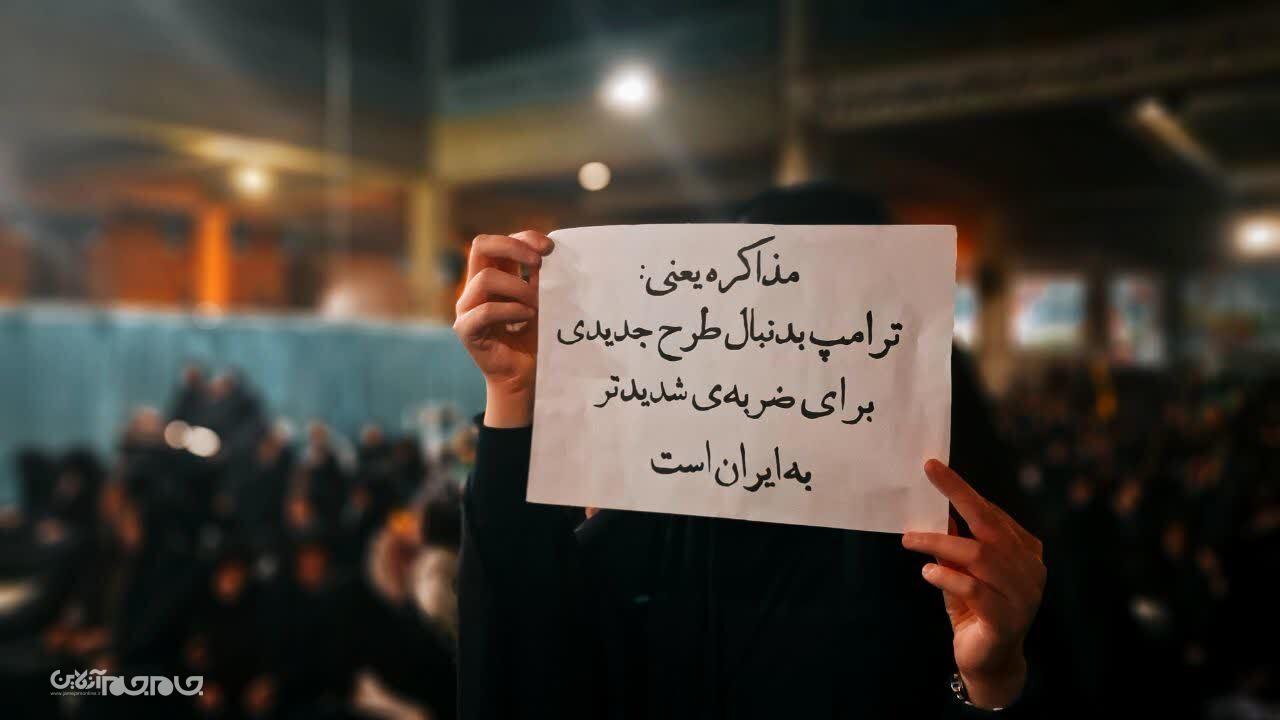 مذاکره یعنی:
ترامپ بدنبال طرح جدیدی
برای ضربه‌ی شدیدتر
به ایران است
جام‌جم آنلاین
www.jamejamonline.ir